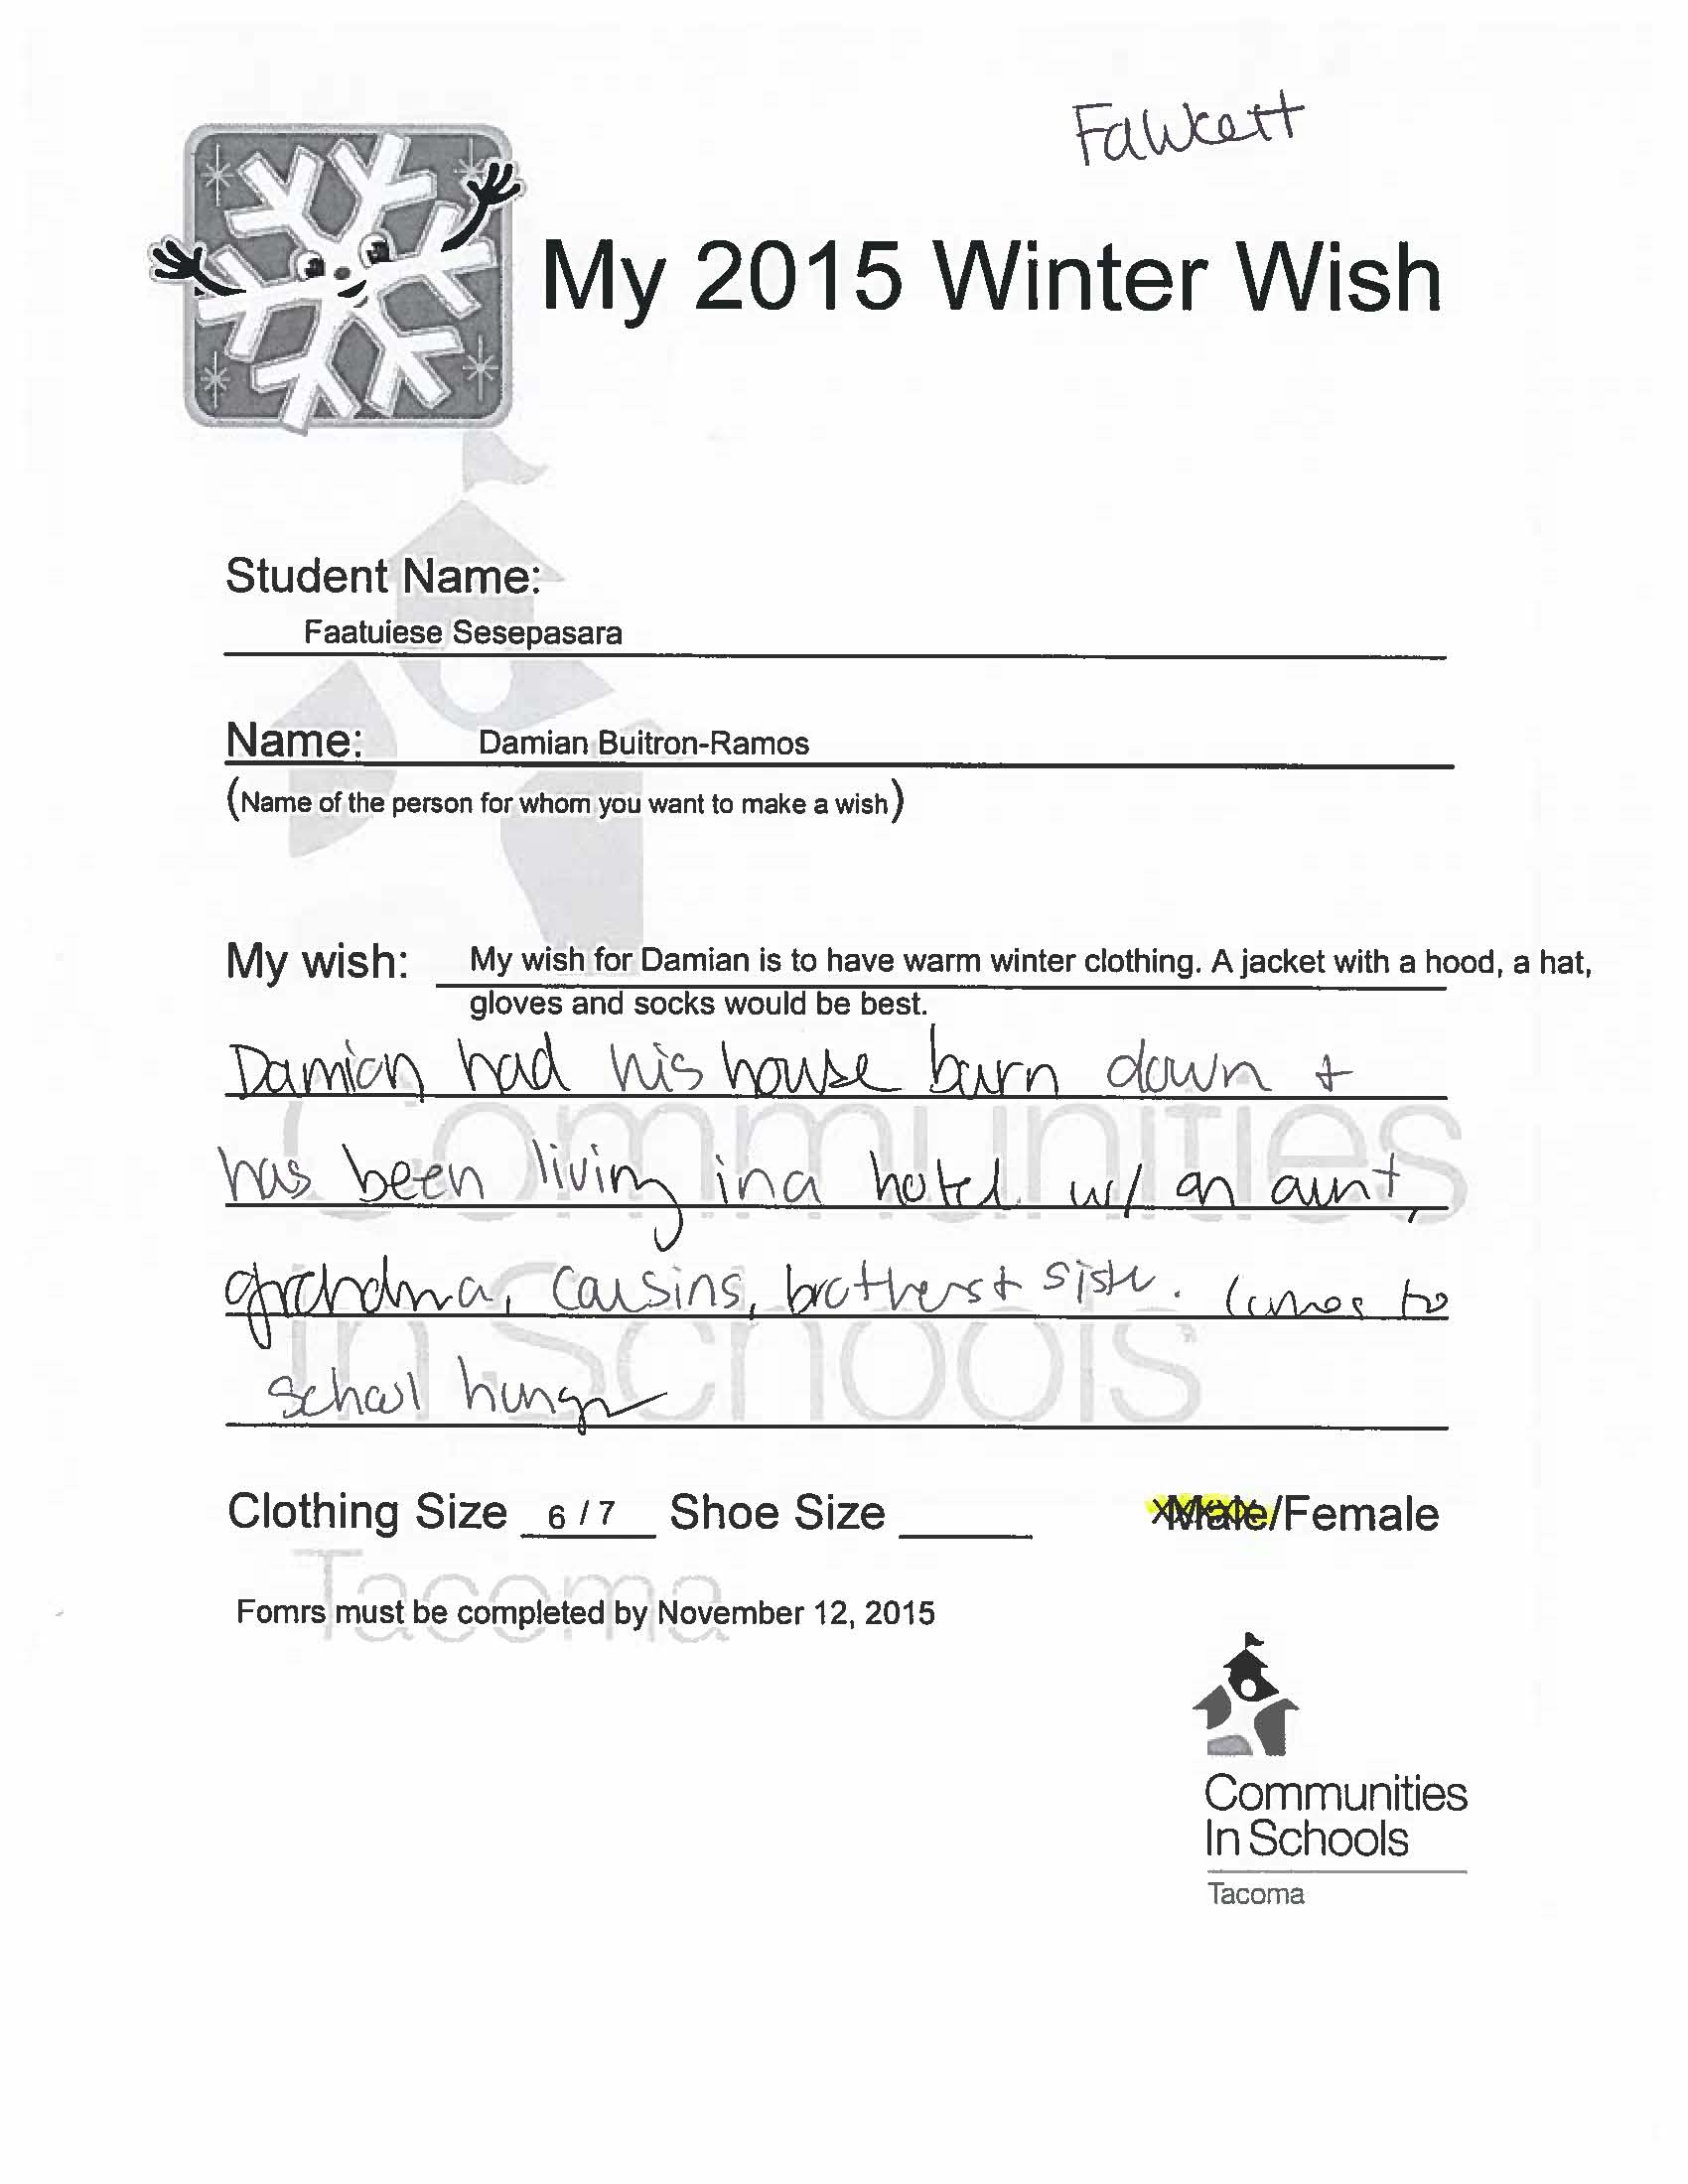 Fawcett
My 2015 Winter Wish
Student Name:
Faatuiese Sesepasara
Name: Damian Buitron-Ramos
(Name of the person for whom you want to make a wish)
My wish: My wish for Damian is to have warm winter clothing. A jacket with a hood, a hat,
gloves and socks would be best.
Damian had his house burn down +
has been living in a hotel w/ an aunt,
grandma, cousins, brothers + sister. Comes to
school hungry
Clothing Size 6 / 7 Shoe Size Male/Female
Fomrs must be completed by November 12, 2015
Communities
In Schools
Tacoma
Communities
In Schools
Tacoma